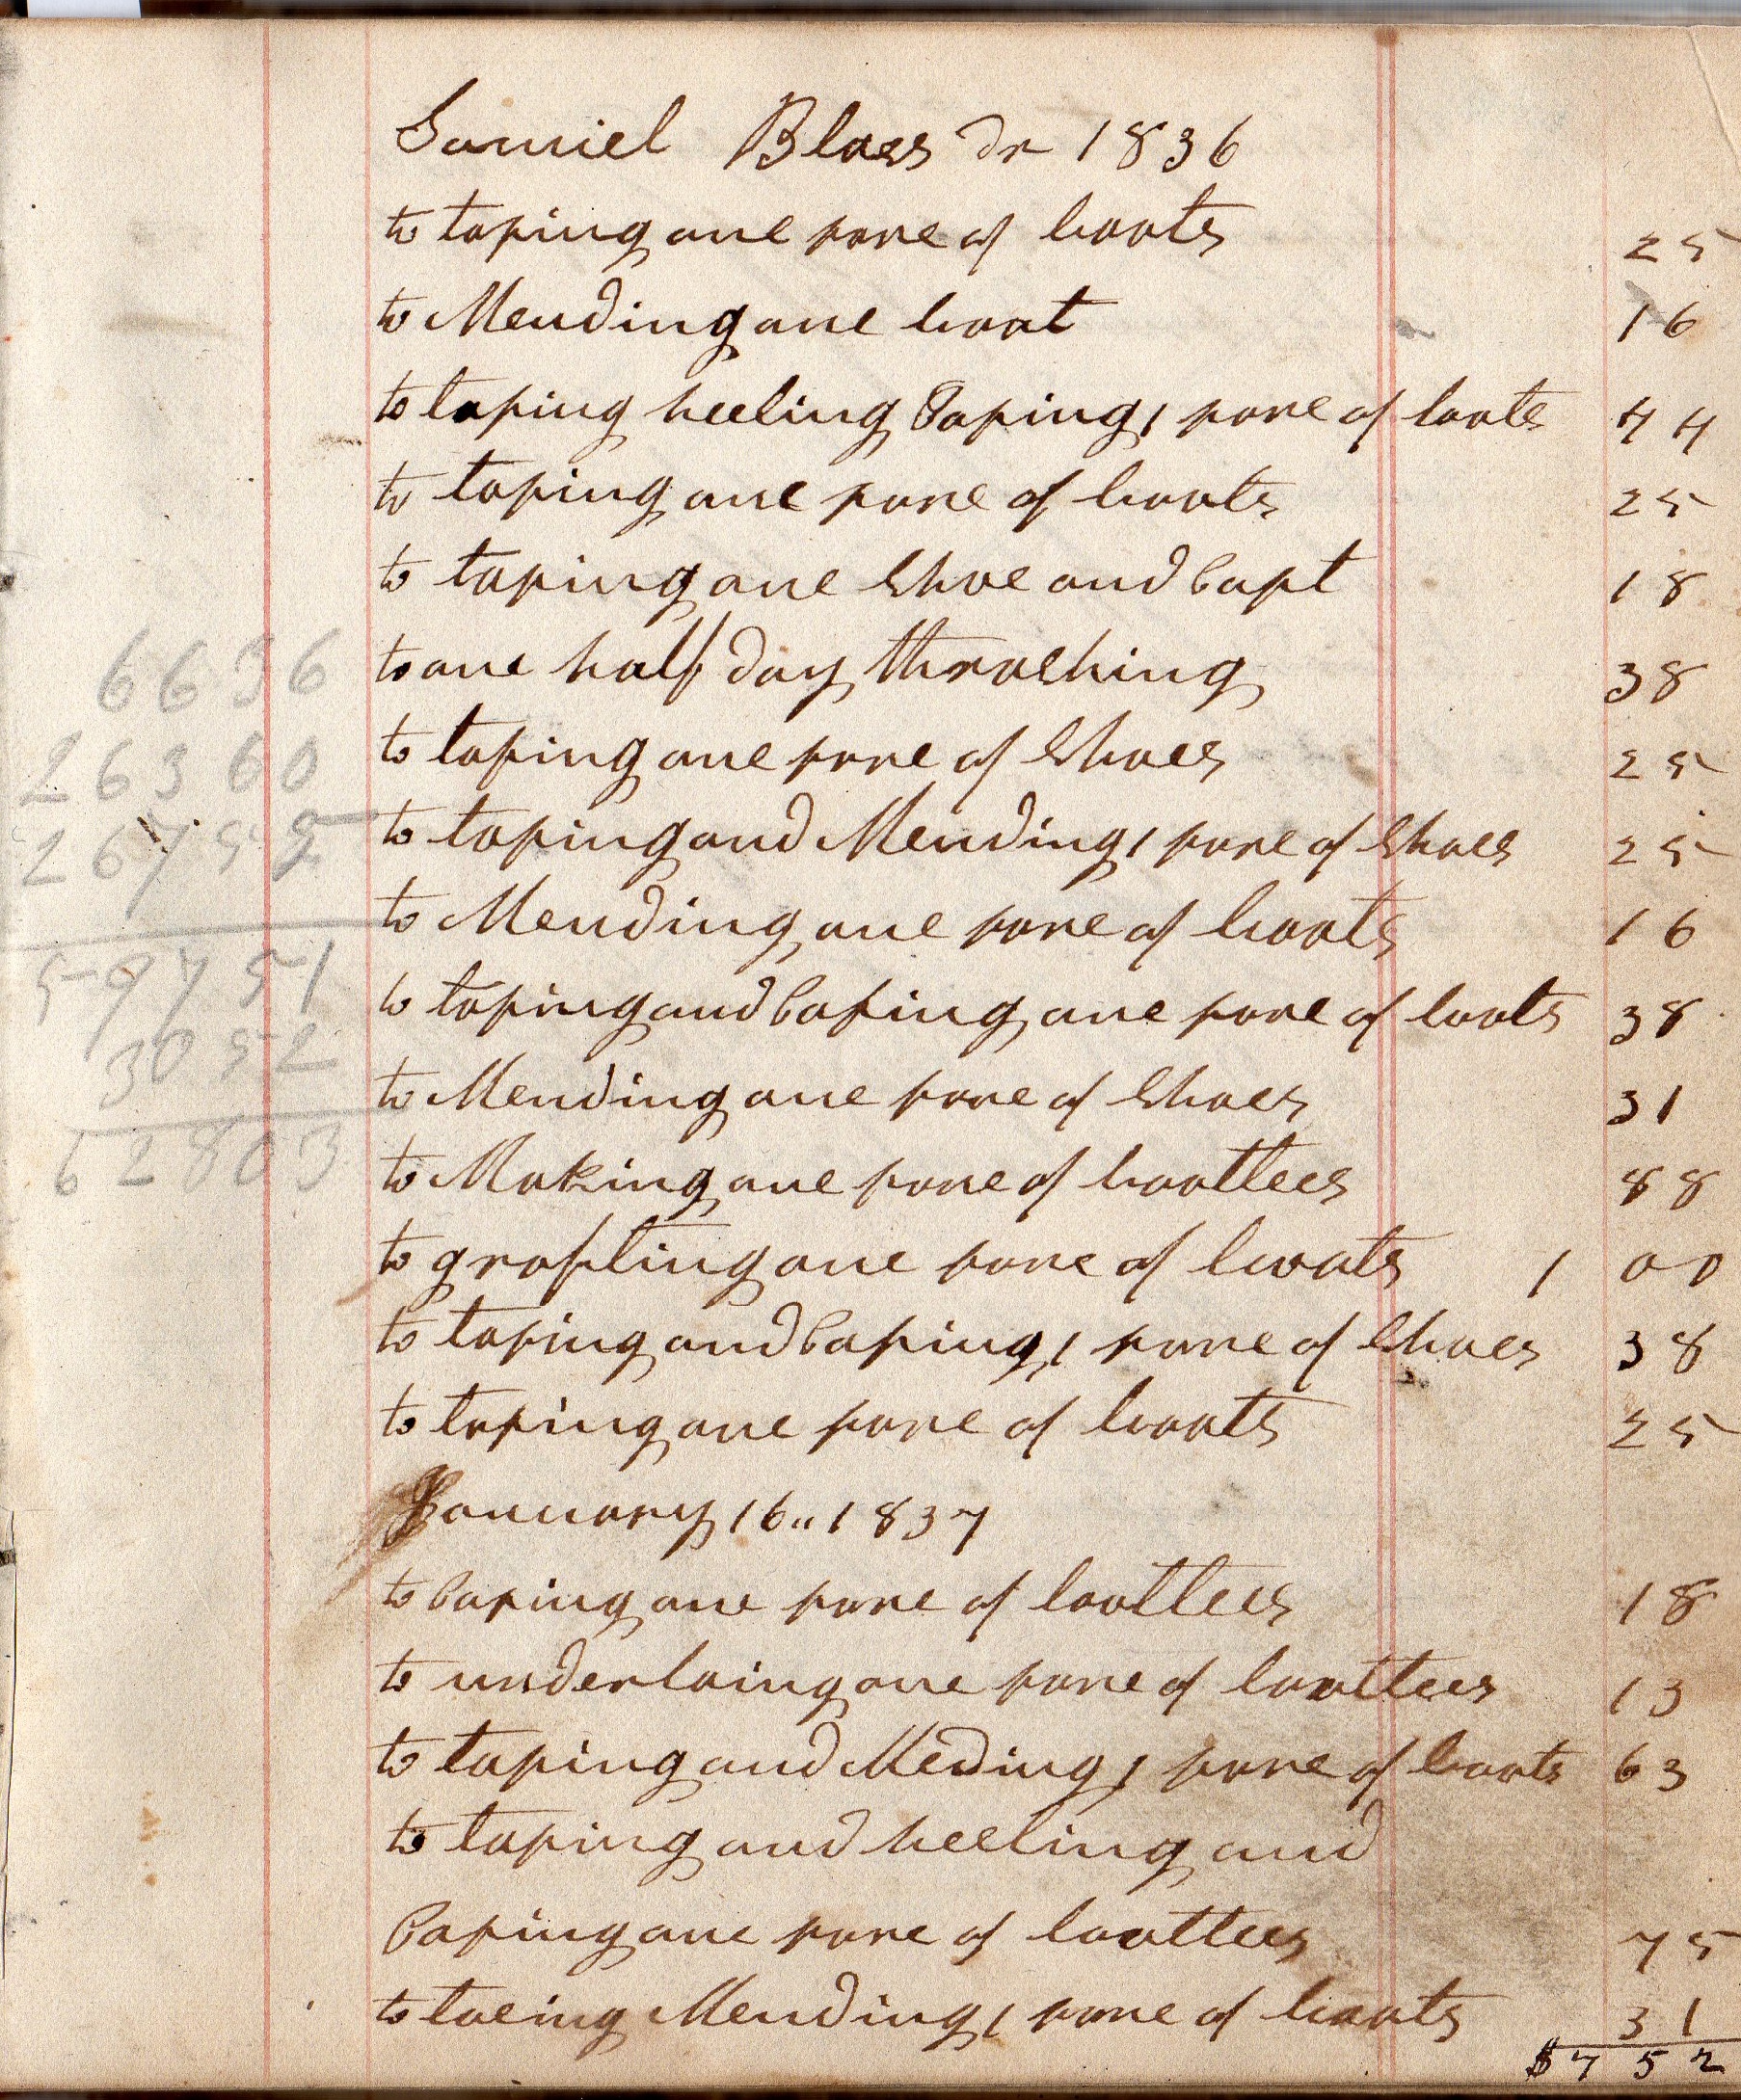 Samiel Bloss Dr 1836
to taping one pare of boots 25
to Mending one boot 16
to taping heeling Caping 1 pare of boots 44
to taping one pare of boots 25
to taping one Shoe and Capt 18
to one half day thrashing 38
to taping one pare of Shoes 25
to taping and Mending 1 pare of Shoes 25
to Mending one pare of boots 16
to taping and Caping one pare of boots 38
to Mending one pare of Shoes 31
to Making one pare of boottees 88
to grafting one pare of boots 1 00
to taping and Caping 1 pare of Shoes 38
to taping one pare of boots 25
January 16,, 1837
to Caping one pare of boottees 18
to underlaing one pare of boottees 13
to taping and Meding 1 pare of boots 63
to taping and heeling and
Caping one pare of boottees 75
to toeing Mending 1 pare of boots 31
$7 52
6636
26360
26755
59751
3052
62803